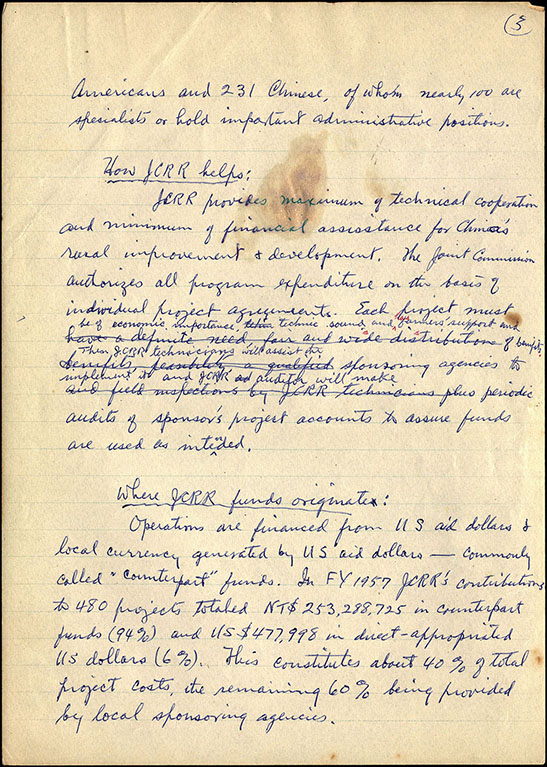 3
Americans and 231 Chinese, of whom nearly 100 are
specialists or hold important administrative positions.
How JCRR helps:
JCRR provides maximum of technical cooperation
and minimum of financial assistance for China's
rural improvement & development. The Joint Commission
authorizes all program expenditure on the basis of
individual project agreements. Each project must
be of economic importance, technic sound and farmers' support and
have a definite need, fair and wide distribution of benefits,
Then JCRR technicians will assist the
benefits feasibility a qualified sponsoring agencies to
implement it and JCRR auditor will make
and field inspections by JCRR technicians plus periodic
audits of sponsor's project accounts to assure funds
are used as intended.
Where JCRR funds originate:
Operations are financed from US aid dollars &
local currency generated by US aid dollars — commonly
called "counterpart" funds. In FY 1957 JCRR's contributions
to 480 projects totaled NT$ 253,288,725 in counterpart
funds (94%) and US$477,998 in direct-appropriated
US dollars (6%). This constitutes about 40% of total
project costs, the remaining 60% being provided
by local sponsoring agencies.